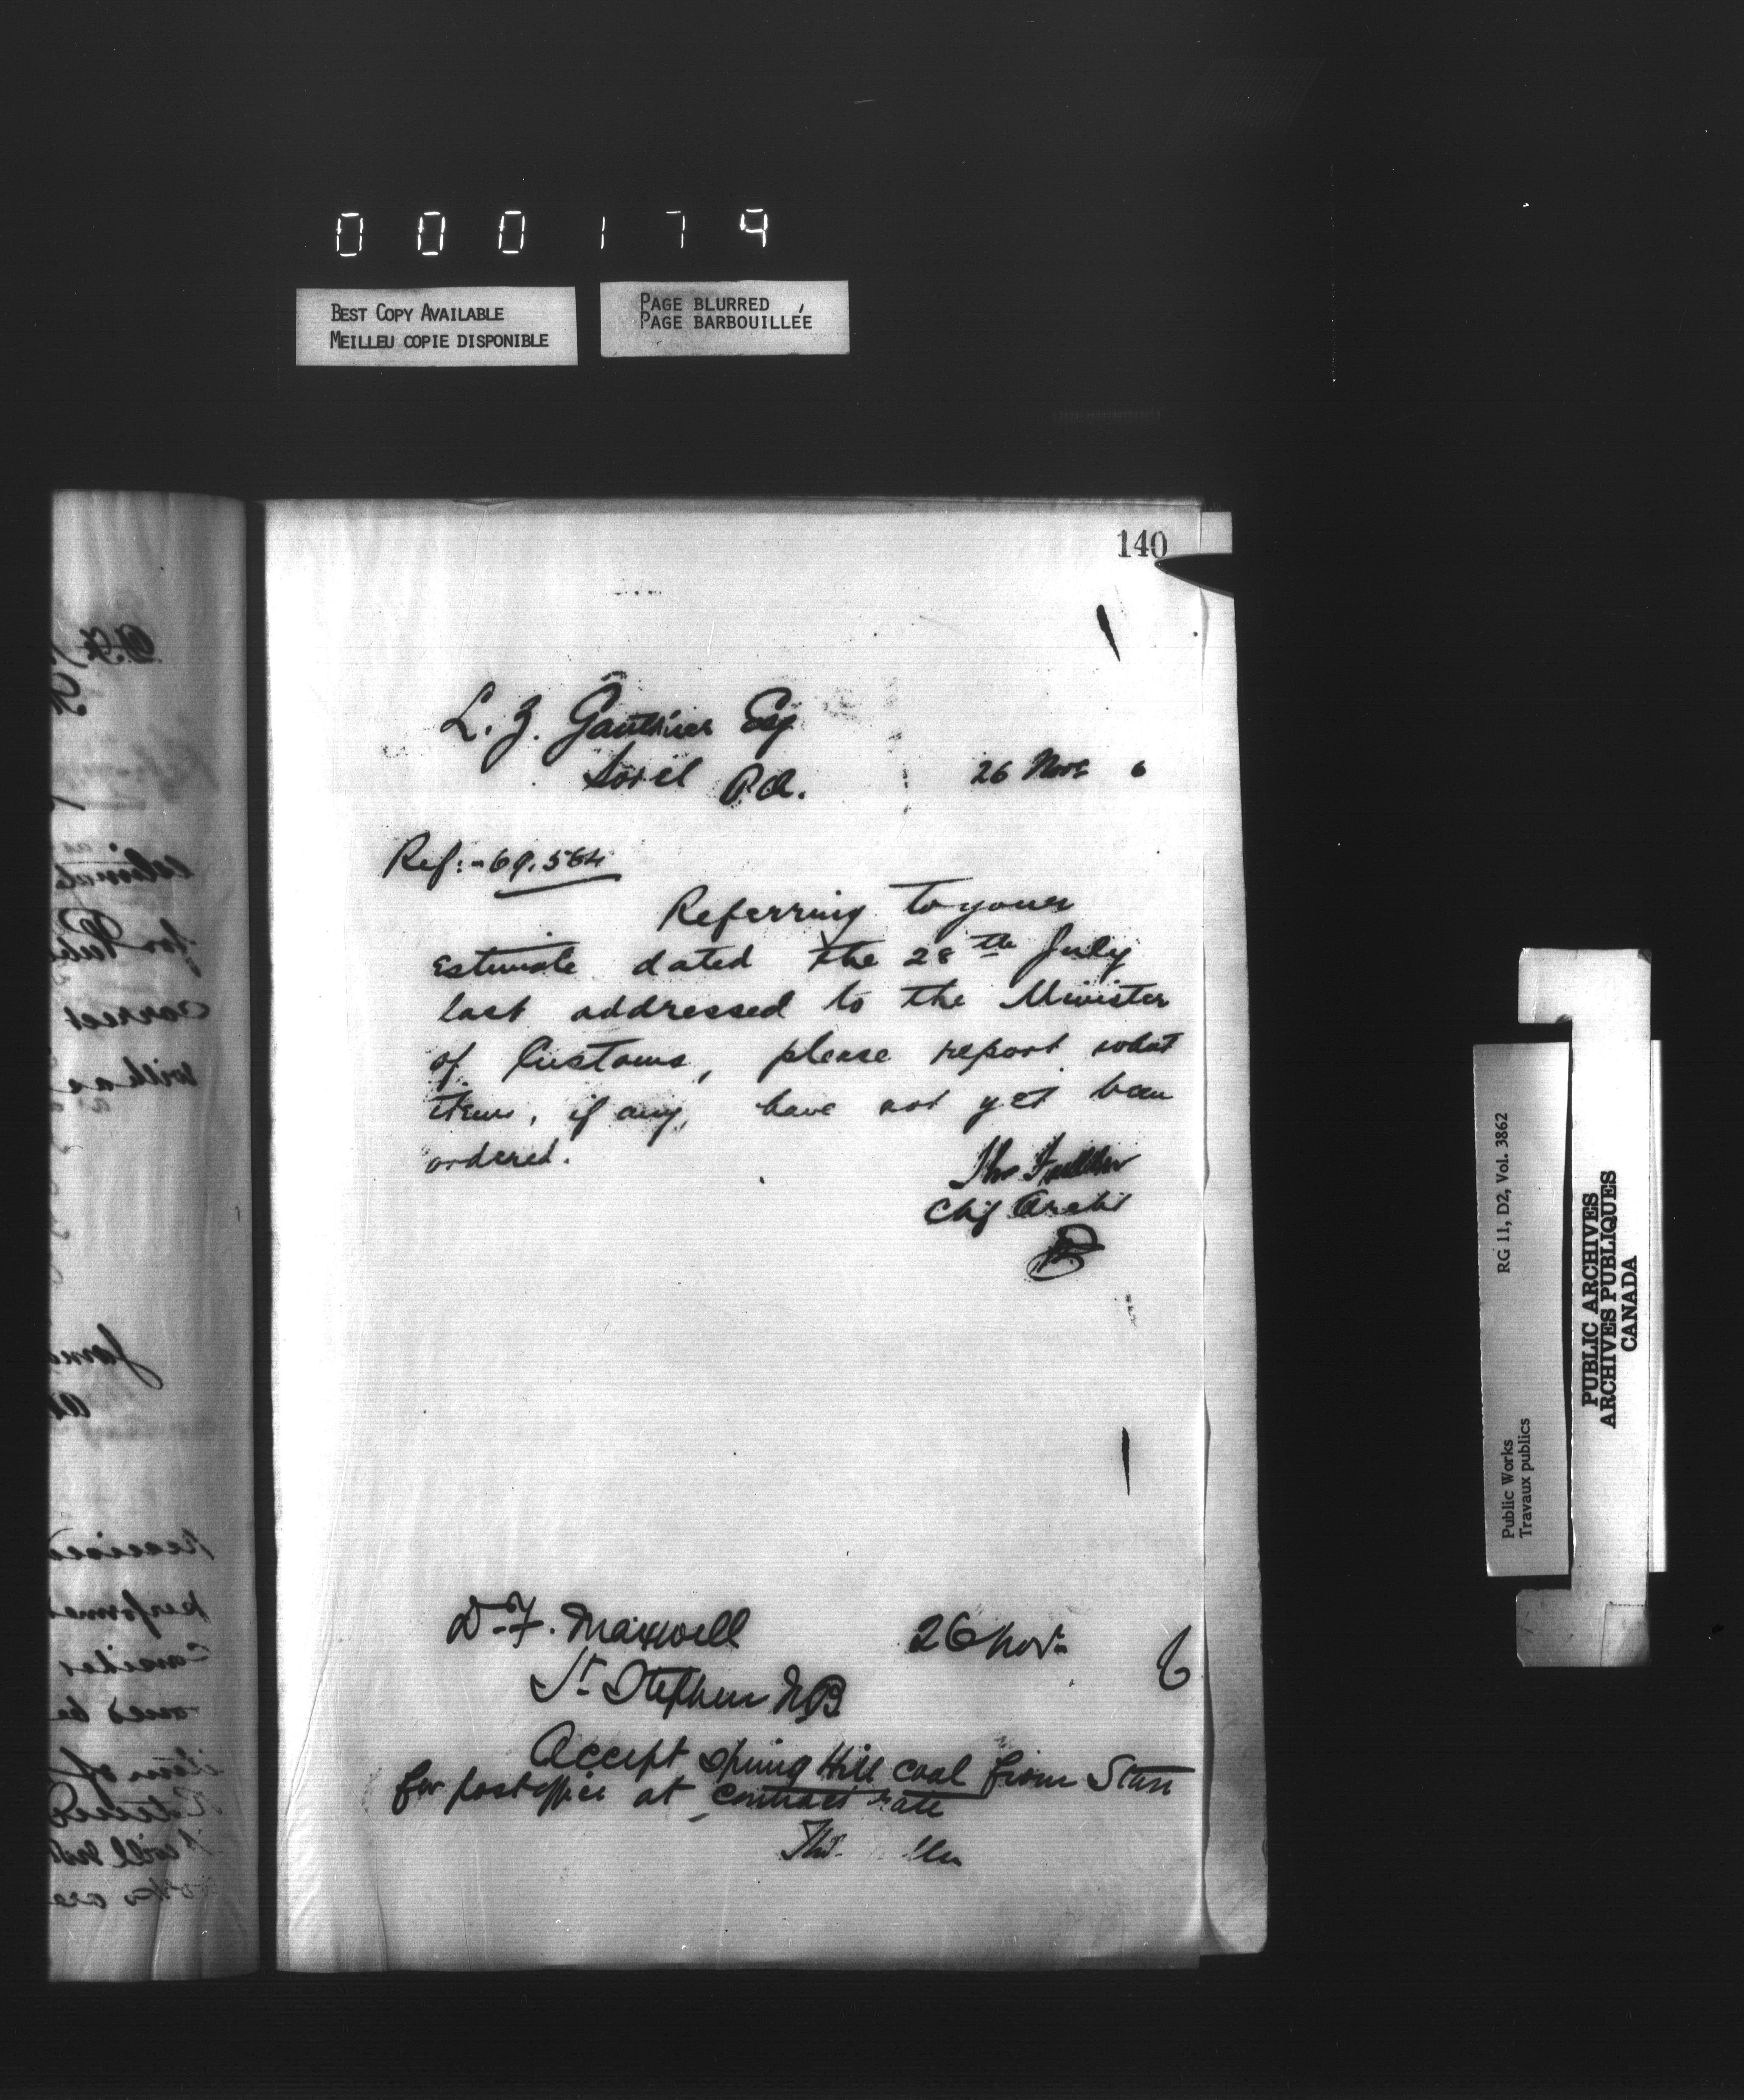 000179
BEST COPY AVAILABLE
MEILLEU COPIE DISPONIBLE
PAGE BLURRED
PAGE BARBOUILLÉE
140
L. Z. Gauthier Esq
Sorel P.Q.
26 Nov. 6
Ref:- 69.564
Referring to your
estimate dated the 28th July
last addressed to the Minister
of Customs, please report what
items, if any, have not yet been
ordered.
Thos Fuller
Chf Archt
D. F. Maxwell
26 Nov. 6
St. Stephen N.B.
Accept Spring Hill coal from Starr
for post office at contract rate
Thos.
RG 11, D2, Vol. 3862
Public Works
Travaux publics
PUBLIC ARCHIVES
ARCHIVES PUBLIQUES
CANADA